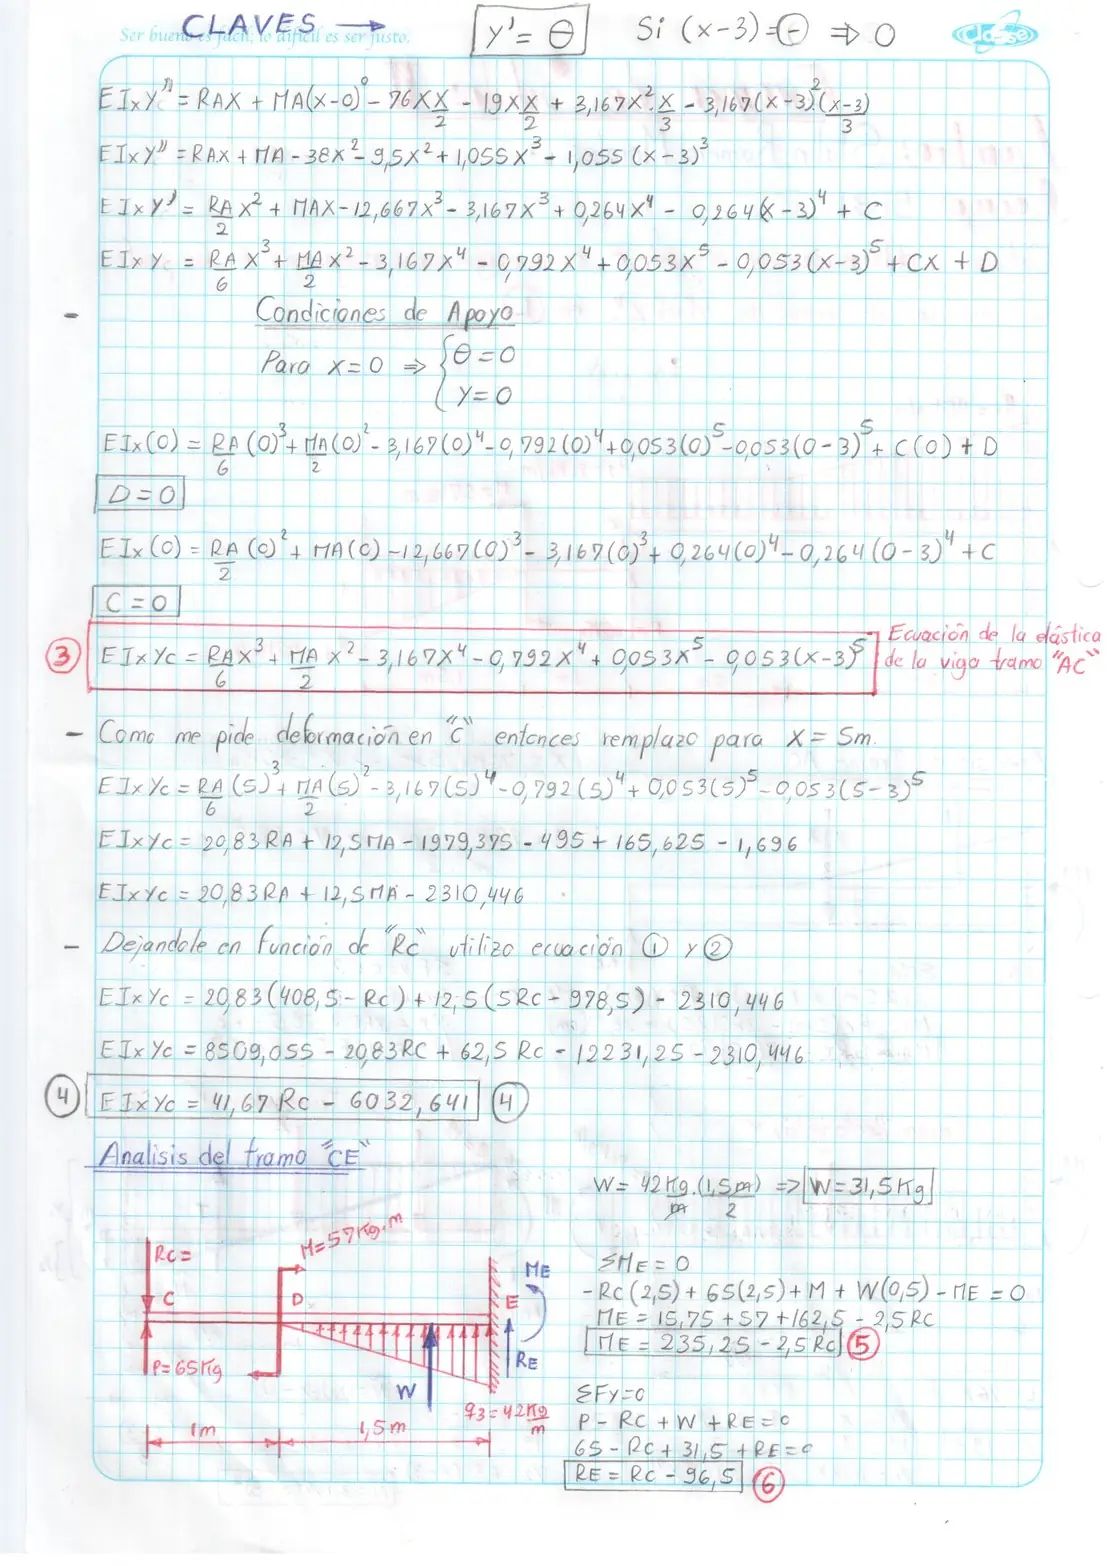 CLAVES → Y' = θ Si (x-3) = (-) ⇒ 0
Ser bueno es fácil, lo difícil es ser justo. Clase
EIxY'' = RAX + MA(x-0)⁰ - 76X X/2 - 19X X/2 + 3,167X² · X/3 - 3,167(X-3)² (x-3)/3
EIxY'' = RAX + MA - 38X² - 9,5X² + 1,055X³ - 1,055(X-3)³
EIxY' = RA/2 X² + MAX - 12,667X³ - 3,167X³ + 0,264X⁴ - 0,264(X-3)⁴ + C
EIxYc = RA/6 X³ + MA/2 X² - 3,167X⁴ - 0,792X⁴ + 0,053X⁵ - 0,053(X-3)⁵ + CX + D
- Condiciones de Apoyo
Para X=0 ⇒ { θ=0
Y=0
EIx(0) = RA/6 (0)³ + MA/2 (0)² - 3,167(0)⁴ - 0,792(0)⁴ + 0,053(0)⁵ - 0,053(0-3)⁵ + C(0) + D
D=0
EIx(0) = RA/2 (0)² + MA(0) - 12,667(0)³ - 3,167(0)³ + 0,264(0)⁴ - 0,264(0-3)⁴ + C
C=0
③ EIxYc = RA/6 X³ + MA/2 X² - 3,167X⁴ - 0,792X⁴ + 0,053X⁵ - 0,053(X-3)⁵
Ecuación de la elástica
de la viga tramo "AC"
- Como me pide deformación en "C" entonces remplazo para X = 5m.
EIxYc = RA/6 (5)³ + MA/2 (5)² - 3,167(5)⁴ - 0,792(5)⁴ + 0,053(5)⁵ - 0,053(5-3)⁵
EIxYc = 20,83RA + 12,5MA - 1979,375 - 495 + 165,625 - 1,696
EIxYc = 20,83RA + 12,5MA - 2310,446
- Dejandole en función de "Rc" utilizo ecuación ① y ②
EIxYc = 20,83(408,5 - Rc) + 12,5(5Rc - 978,5) - 2310,446
EIxYc = 8509,055 - 20,83RC + 62,5Rc - 12231,25 - 2310,446
④ EIxYc = 41,67Rc - 6032,641 ④
Analisis del tramo "CE"
W = 42 Kg/m · (1,5m)/2 ⇒ W = 31,5Kg
M=57Kg.m
Rc=
C
D
ME
E
P=65Kg
RE
W
q3=42Kg/m
1m
1,5m
ΣME = 0
-Rc(2,5) + 65(2,5) + M + W(0,5) - ME = 0
ME = 15,75 + 57 + 162,5 - 2,5RC
ME = 235,25 - 2,5Rc ⑤
ΣFy=0
P - RC + W + RE = 0
65 - RC + 31,5 + RE = 0
RE = RC - 96,5 ⑥